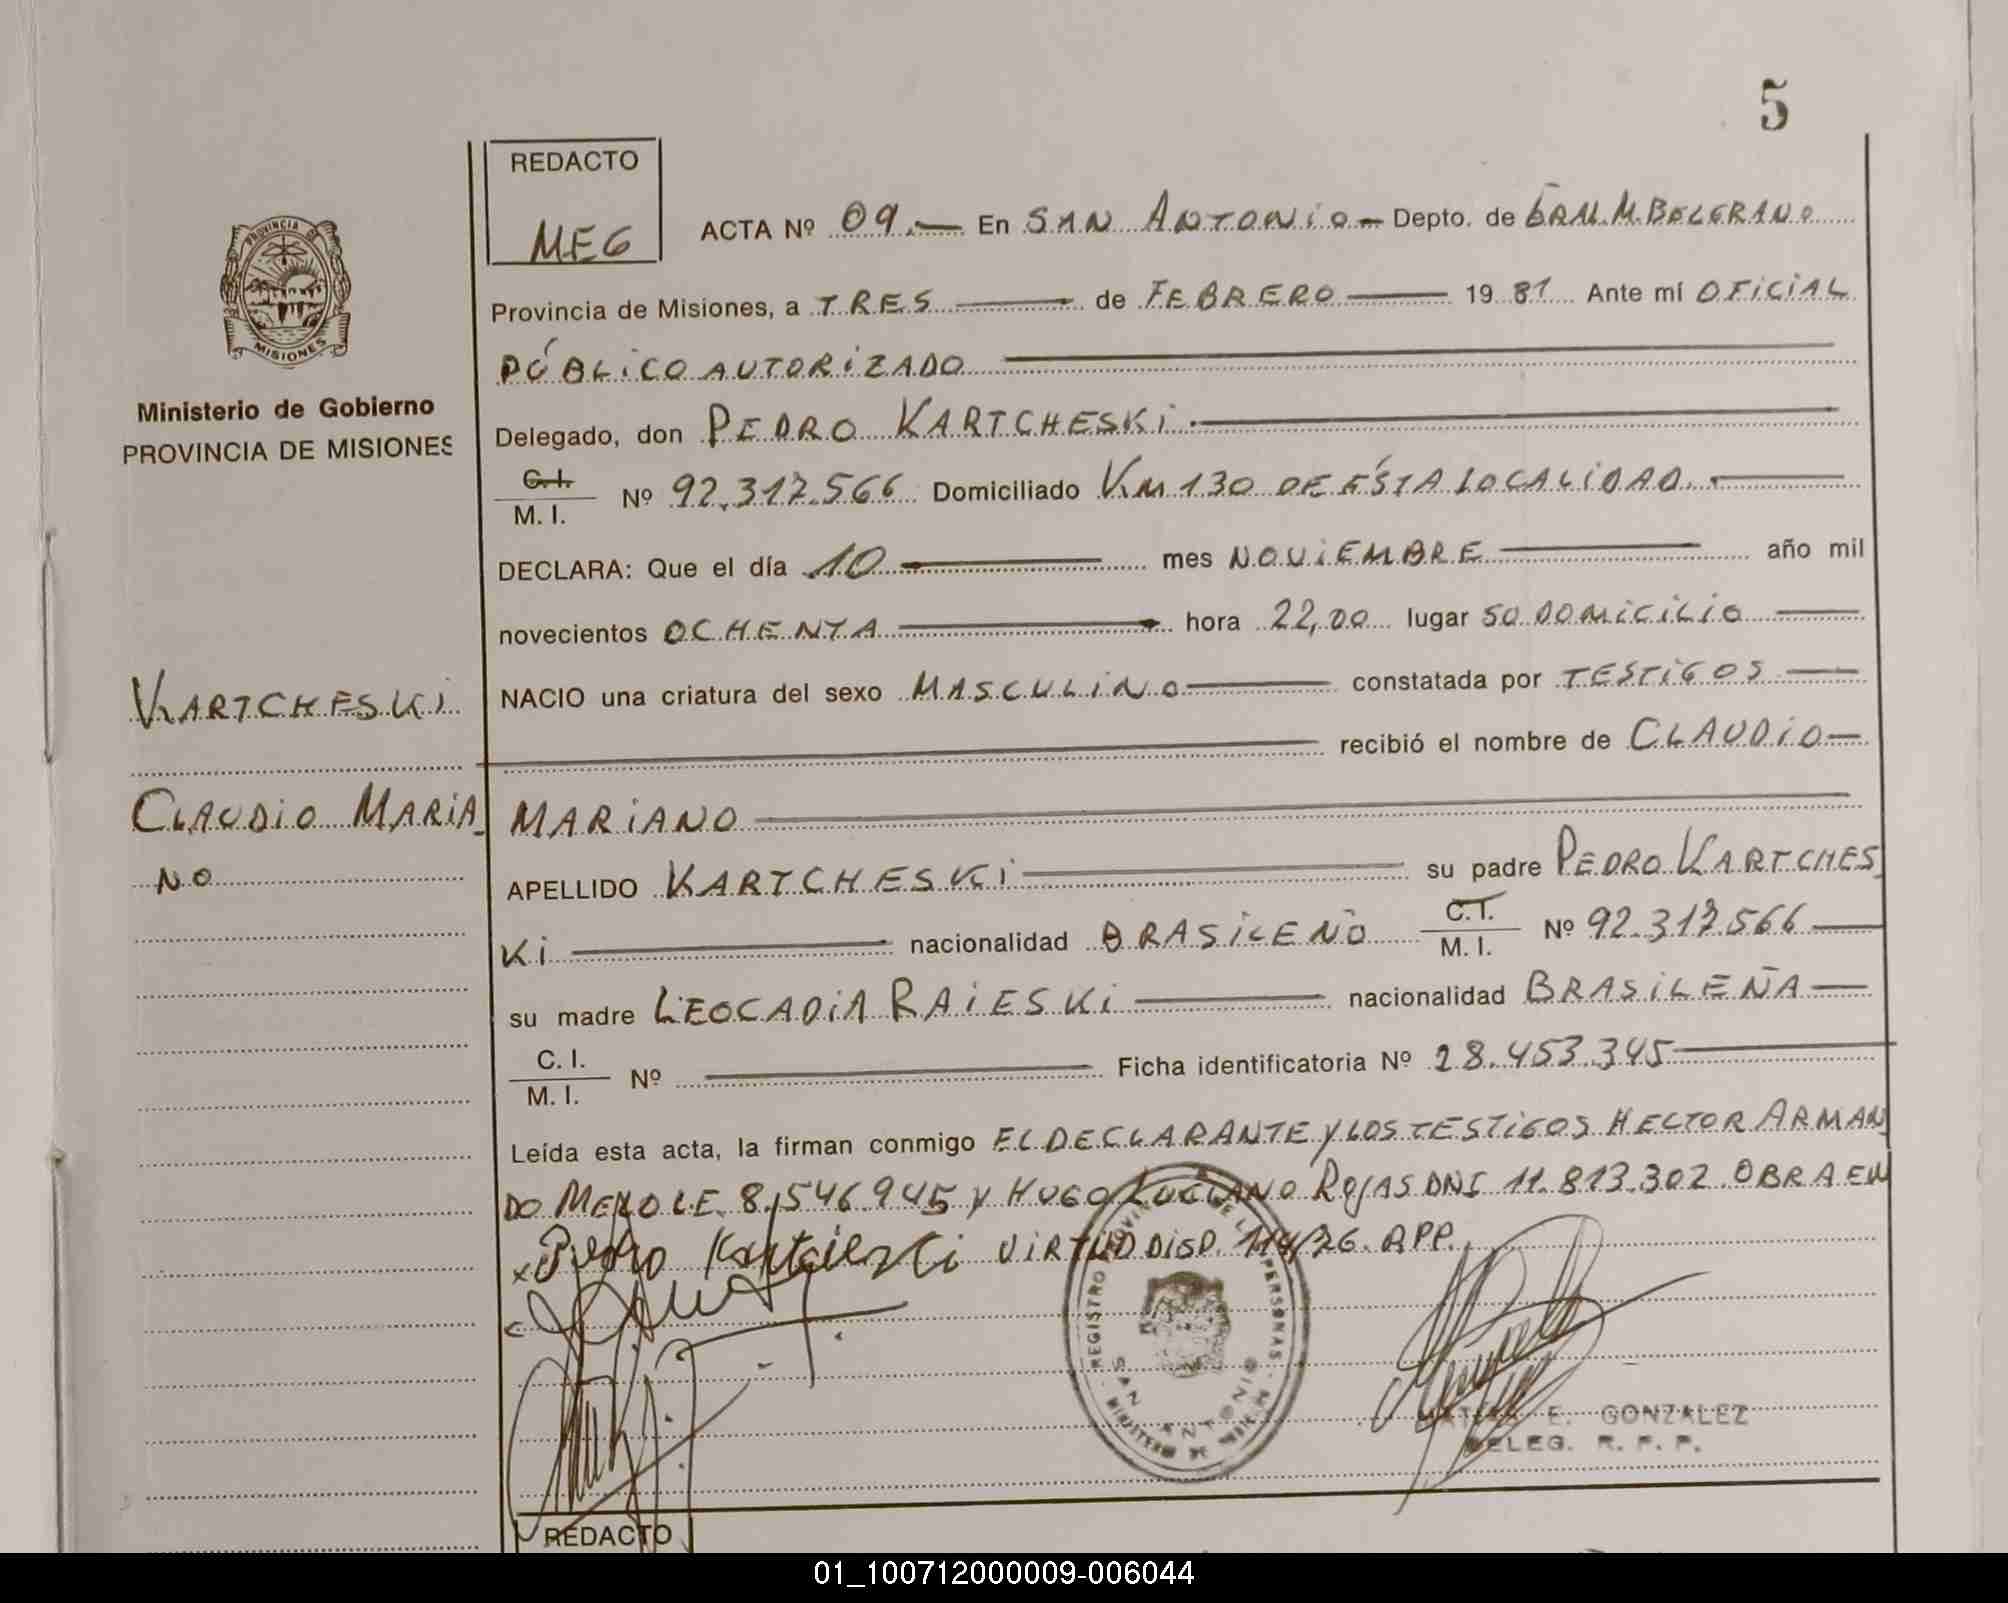 5
REDACTO
MEG
ACTA Nº 09.— En SAN ANTONIO — Depto. de GRAL. M. BELGRANO
Provincia de Misiones, a TRES de FEBRERO 19 81 Ante mí OFICIAL
PÚBLICO AUTORIZADO
Delegado, don PEDRO KARTCHESKI
C.I. / M. I. Nº 92.317.566 Domiciliado KM 130 DE ÉSTA LOCALIDAD.
DECLARA: Que el día 10 mes NOVIEMBRE año mil
novecientos OCHENTA hora 22,00 lugar SO DOMICILIO
NACIO una criatura del sexo MASCULINO constatada por TESTIGOS
recibió el nombre de CLAUDIO
MARIANO
APELLIDO KARTCHESKI su padre PEDRO KARTCHES
KI nacionalidad BRASILEÑO C.I. / M. I. Nº 92.317.566
su madre LEOCADIA RAIESKI nacionalidad BRASILEÑA
C. I. / M. I. Nº Ficha identificatoria Nº 28.453.345
Leída esta acta, la firman conmigo EL DECLARANTE Y LOS TESTIGOS HECTOR ARMAN
DO MELO L.E. 8.546.945 Y HUGO LUCIANO ROJAS DNI 11.813.302. OBRA EN
x Pedro VIRTUD DISP. 114/76. RPP.
PROVINCIA DE
MISIONES
Ministerio de Gobierno
PROVINCIA DE MISIONES
KARTCHESKI
CLAUDIO MARIA
NO
REGISTRO PROVINCIAL DE LAS PERSONAS
SAN ANTONIO
MINISTERIO DE
E. GONZALEZ
DELEG. R. P. P.
REDACTO
01_100712000009-006044